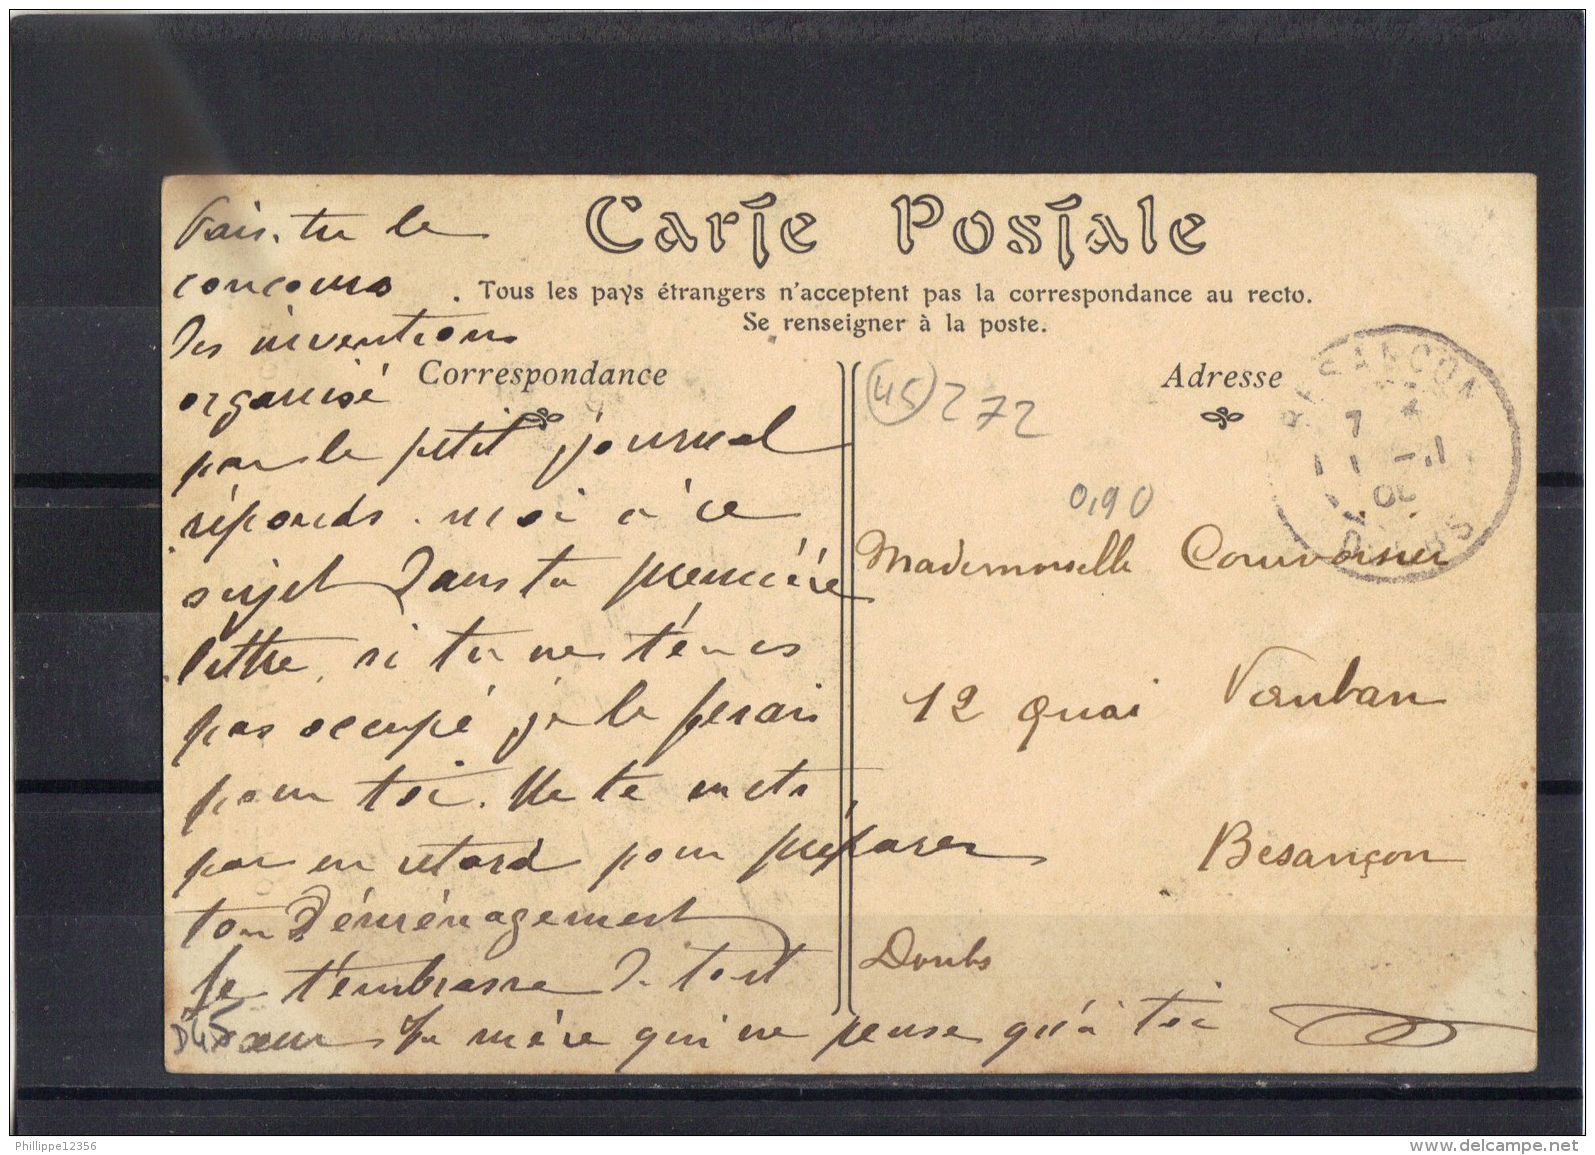 Carte Postale
Tous les pays étrangers n'acceptent pas la correspondance au recto.
Se renseigner à la poste.
Correspondance
Adresse
Fais-tu le
concours
des inventions
organisé
par le petit journal
réponds-moi à ce
sujet dans ta première
lettre, si tu ne t'en es
pas occupé je le ferais
pour toi. Ne te mets
pas en retard pour préparer
ton Déménagement
Je t'embrasse de tout
cœur Ta mère qui ne pense qu'à toi
45 272
0,90
Mademoiselle Courvoisier
12 quai Vauban
Besançon
Doubs
BESANCON
DOUBS
D45
Philippe12356
www.delcampe.net